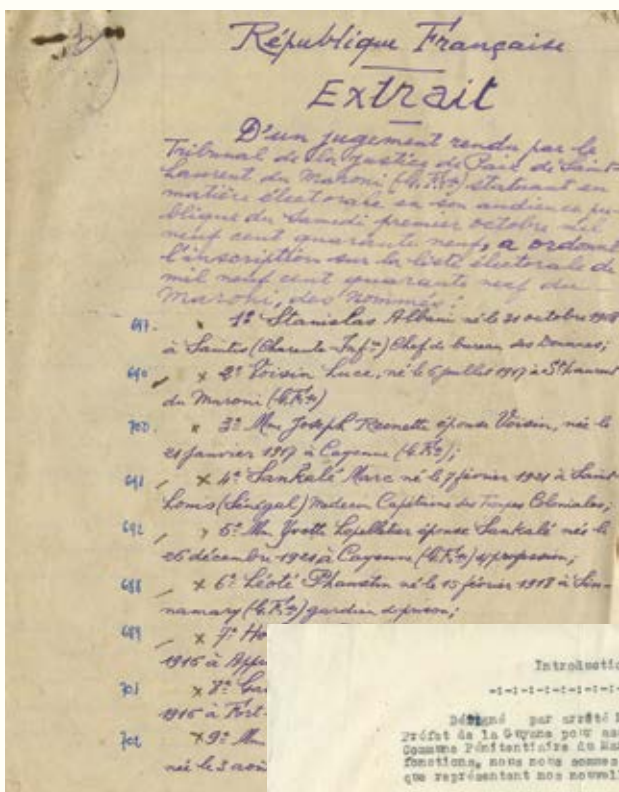 République Française
Extrait
D'un jugement rendu par le
Tribunal de la Justice de Paix de Saint-
Laurent du Maroni (G. Fse) statuant en
matière électorale en son audience pu-
blique du Samedi premier octobre mil
neuf cent quarante neuf, a ordonné
l'inscription sur la liste électorale de
mil neuf cent quarante neuf du
Maroni, des nommés :
x 1° Stanislas Albani né le 21 octobre
à Saintes (Charente-Infre) Chef de bureau des Douanes;
690 x 2° Voisin Luce, né le 6 juillet 1917 à St Laurent
du Maroni (G. Fse)
700 x 3° Mme Joseph épouse Voisin, née le
21 janvier 1917 à Cayenne (G. Fse);
691 x 4° Sankalé Marc né le 7 février 1921 à Saint-
Louis (Sénégal) Médecin Capitaine des Troupes Coloniales;
692 5° Mme Yvette Lepelletier épouse Sankalé née le
26 décembre 1921 à Cayenne (G. Fse) s/profession;
688 x 6° Léoté né le 15 février 1918 à Sin-
namary (G. Fse) gardien de prison;
689 x 7° Ho
1915 à
701 x 8°
1915 à Fort-
702 x 9° Mme
née le 3 aoû
Introductio
-:-:-:-:-:-:-:-
Désigné par arrêté
Préfet de la Guyane pour
Commune Pénitentiaire du
fonctions, nous nous sommes
que représentent nos nouvel